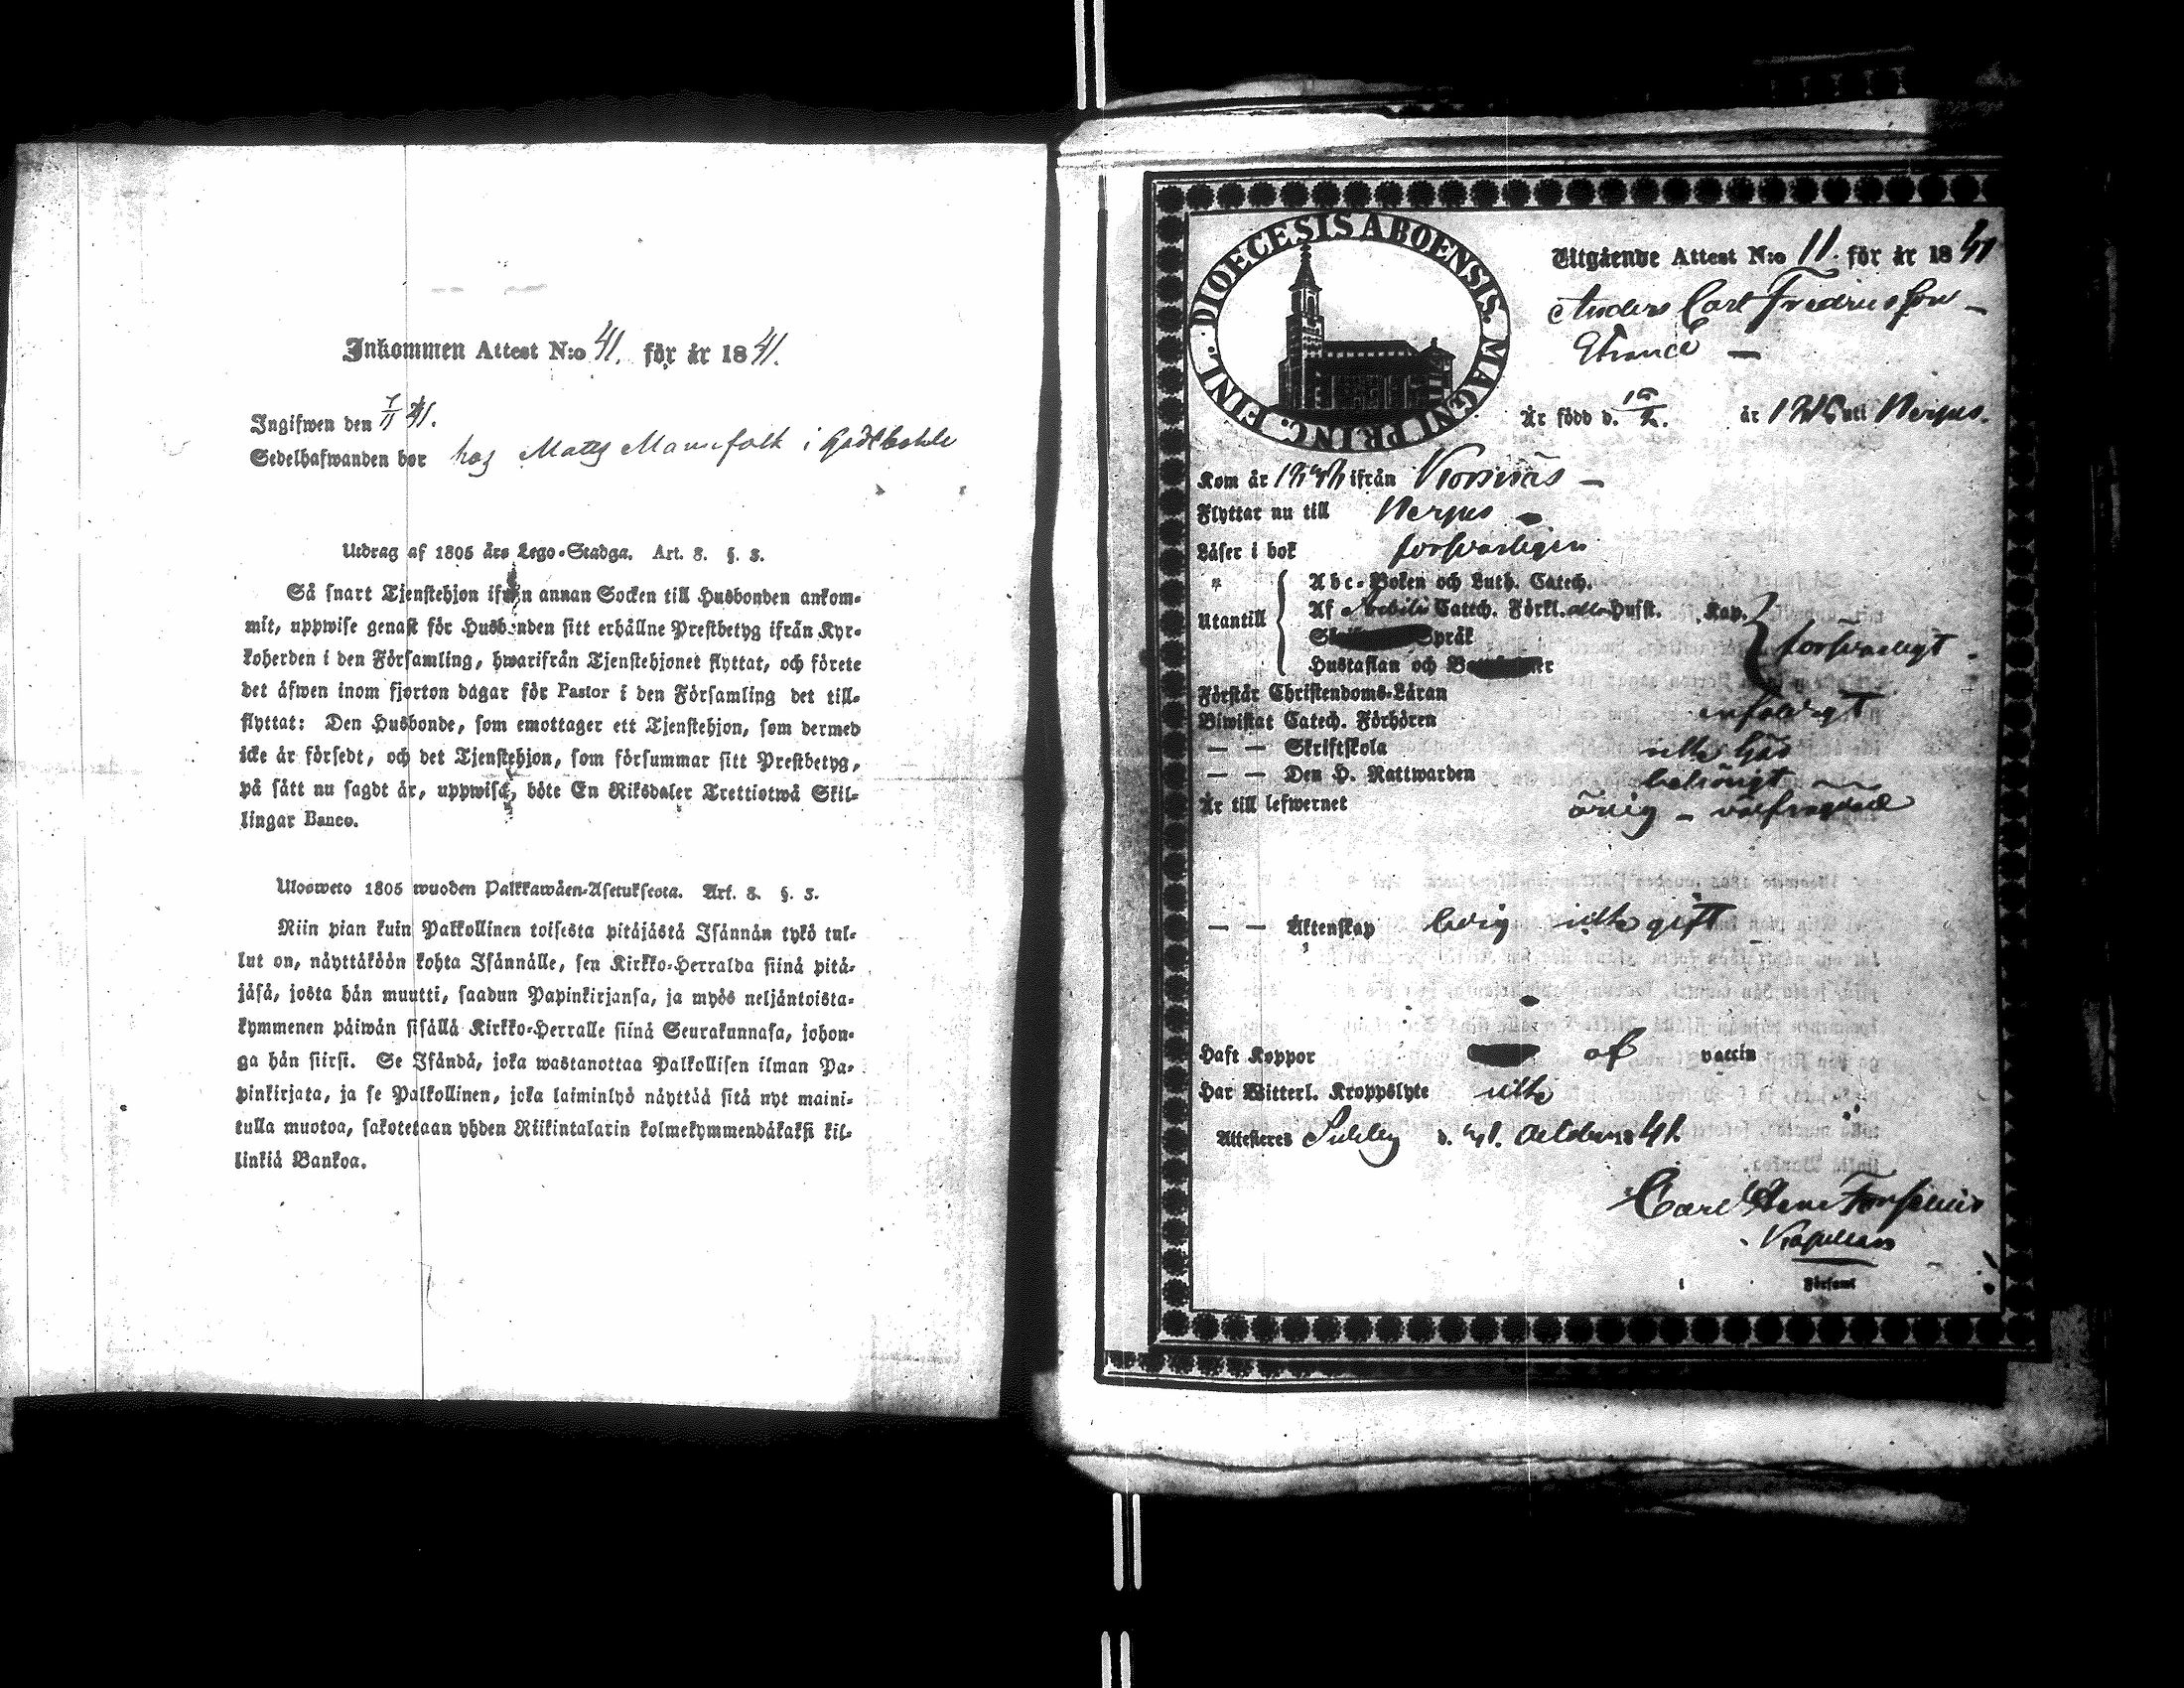 Inkommen Attest N:o 41. för år 1841.
Ingifwen den 7/11 41.
Sedelhafwanden bor hos Matts Mannfolk i Gottböhle
Utdrag af 1805 års Lego-Stadga. Art. 8. §. 3.
Så snart Tjenstehjon ifrån annan Socken till Husbonden ankom-
mit, uppwise genast för Husbonden sitt erhållne Prestbetyg ifrån Kyr-
koherden i den Församling, hwarifrån Tjenstehjonet flyttat, och förete
det äfwen inom fjorton dagar för Pastor i den Församling det till-
flyttat: Den Husbonde, som emottager ett Tjenstehjon, som dermed
icke är försedt, och det Tjenstehjon, som försummar sitt Prestbetyg,
på sätt nu sagdt är, uppwisa, böte En Riksdaler Trettiotwå Skil-
lingar Banco.
Ulosweto 1805 wuoden Palkkawäen-Asetuksesta. Art. 8. §. 3.
Niin pian kuin Palkollinen toisesta pitäjästä Isännän tykö tul-
lut on, näyttäköön kohta Isännälle, sen Kirkko-Herralda siinä pitä-
jäsä, josta hän muutti, saadun Papinkirjansa, ja myös neljäntoista-
kymmenen päiwän sisällä Kirkko-Herralle siinä Seurakunnasa, johon-
ga hän siirsi. Se Isändä, joka wastanottaa Palkollisen ilman Pa-
pinkirjata, ja se Palkollinen, joka laiminlyö näyttää sitä nyt maini-
tulla muotoa, sakotetaan yhden Riikintalarin kolmekymmendäkaksi kil-
linkiä Bankoa.
DIOECESIS ABOENSIS. MAGNI PRINC. FINL.
Utgående Attest N:o 11. för år 1841
Anders Carl Fredriksson
Är född d. år uti Nerpes.
Kom år ifrån Korsnäs
Flyttar nu till Nerpes
Läser i bok försvarligen
Utantill
Abc-Boken och Luth. Catech.
Af Svebilii Catech. Förkl. Hufst. Kap.
Språk försvarligt
Hustaflan och
Förstår Christendoms-Läran enfaldigt
Biwistat Catech. Förhören
— — Skriftskola
— — Den H. Nattwarden begångt
Är till lefwernet ärlig - välfrägdad
— — Äktenskap ledig icke gift
Haft Koppor af vaccin
Har Witterl. Kroppslyte icke
Attesteras d. October 1841.
Carl
Kapellan
i Församl